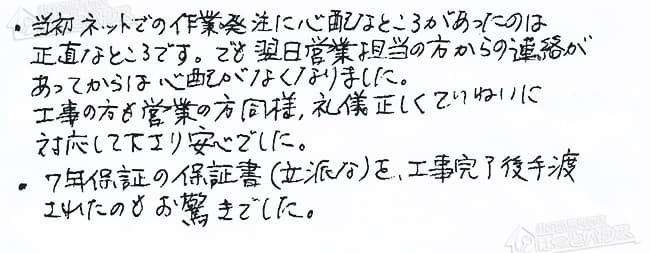 ・当初ネットでの作業発注に心配なところがあったのは
正直なところです。でも翌日営業担当の方からの連絡が
あってからは心配がなくなりました。
工事の方も営業の方同様,礼儀正しくていねいに
対応して下さり安心でした。
・7年保証の保証書(立派な)を、工事完了後手渡
されたのもお驚きでした。